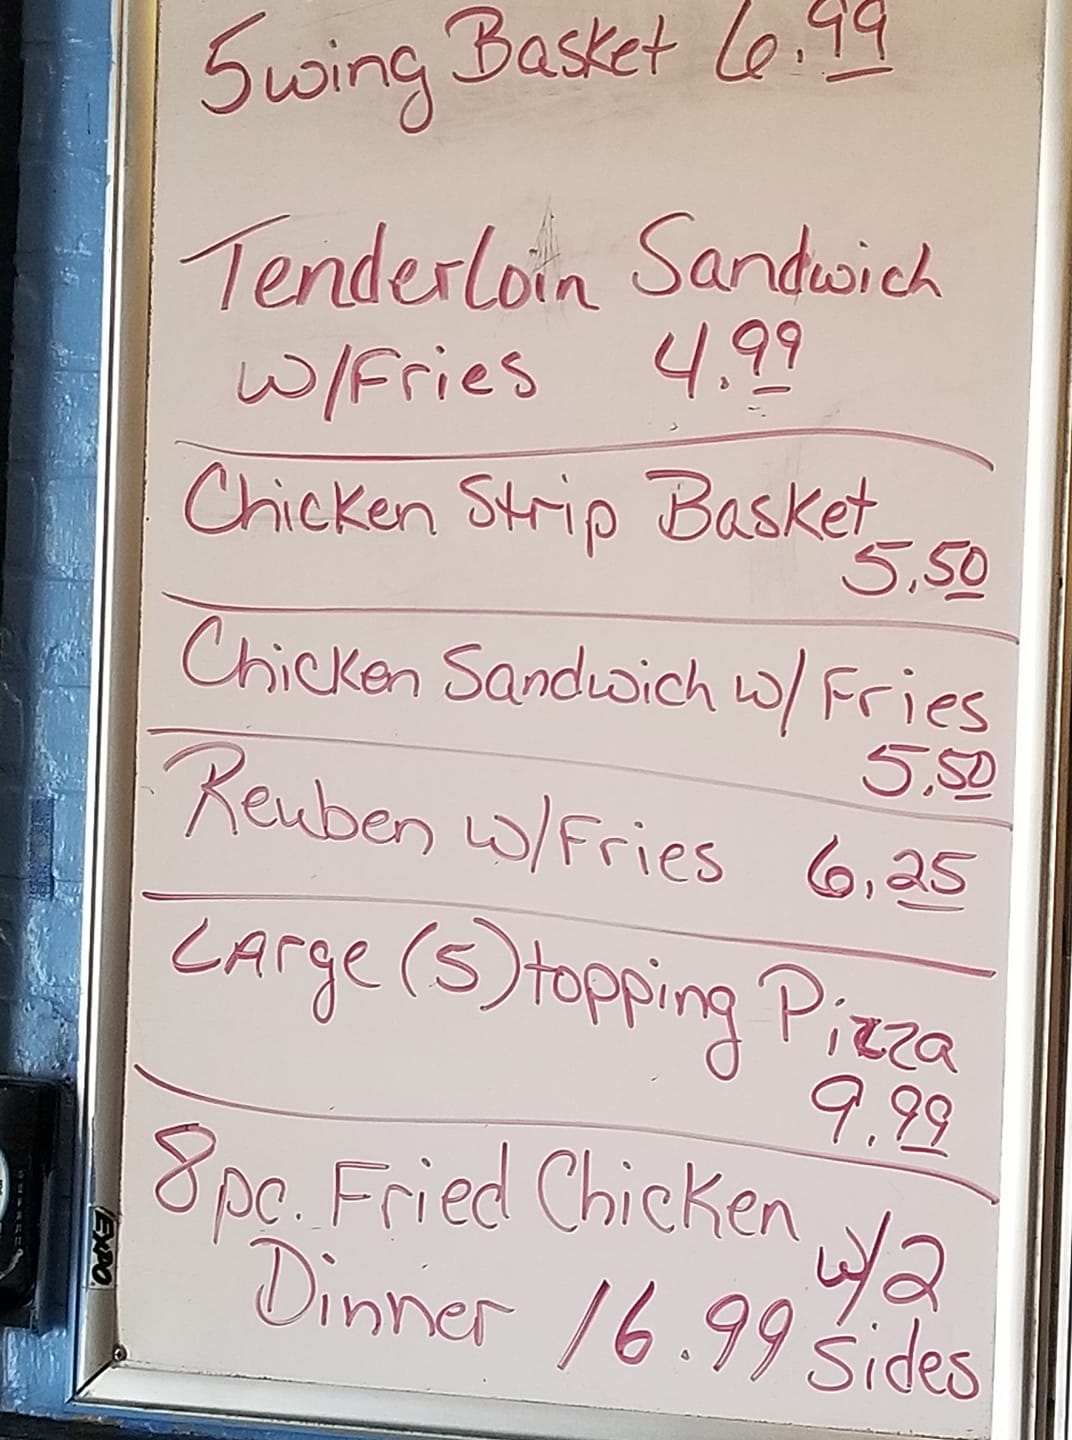 5 wing Basket 6.99
Tenderloin Sandwich
w/Fries 4.99
Chicken Strip Basket
5.50
Chicken Sandwich w/ Fries
5.50
Reuben w/Fries 6.25
LArge (5) topping Pizza
9.99
8 pc. Fried Chicken w/2
Dinner 16.99 sides
EXPO